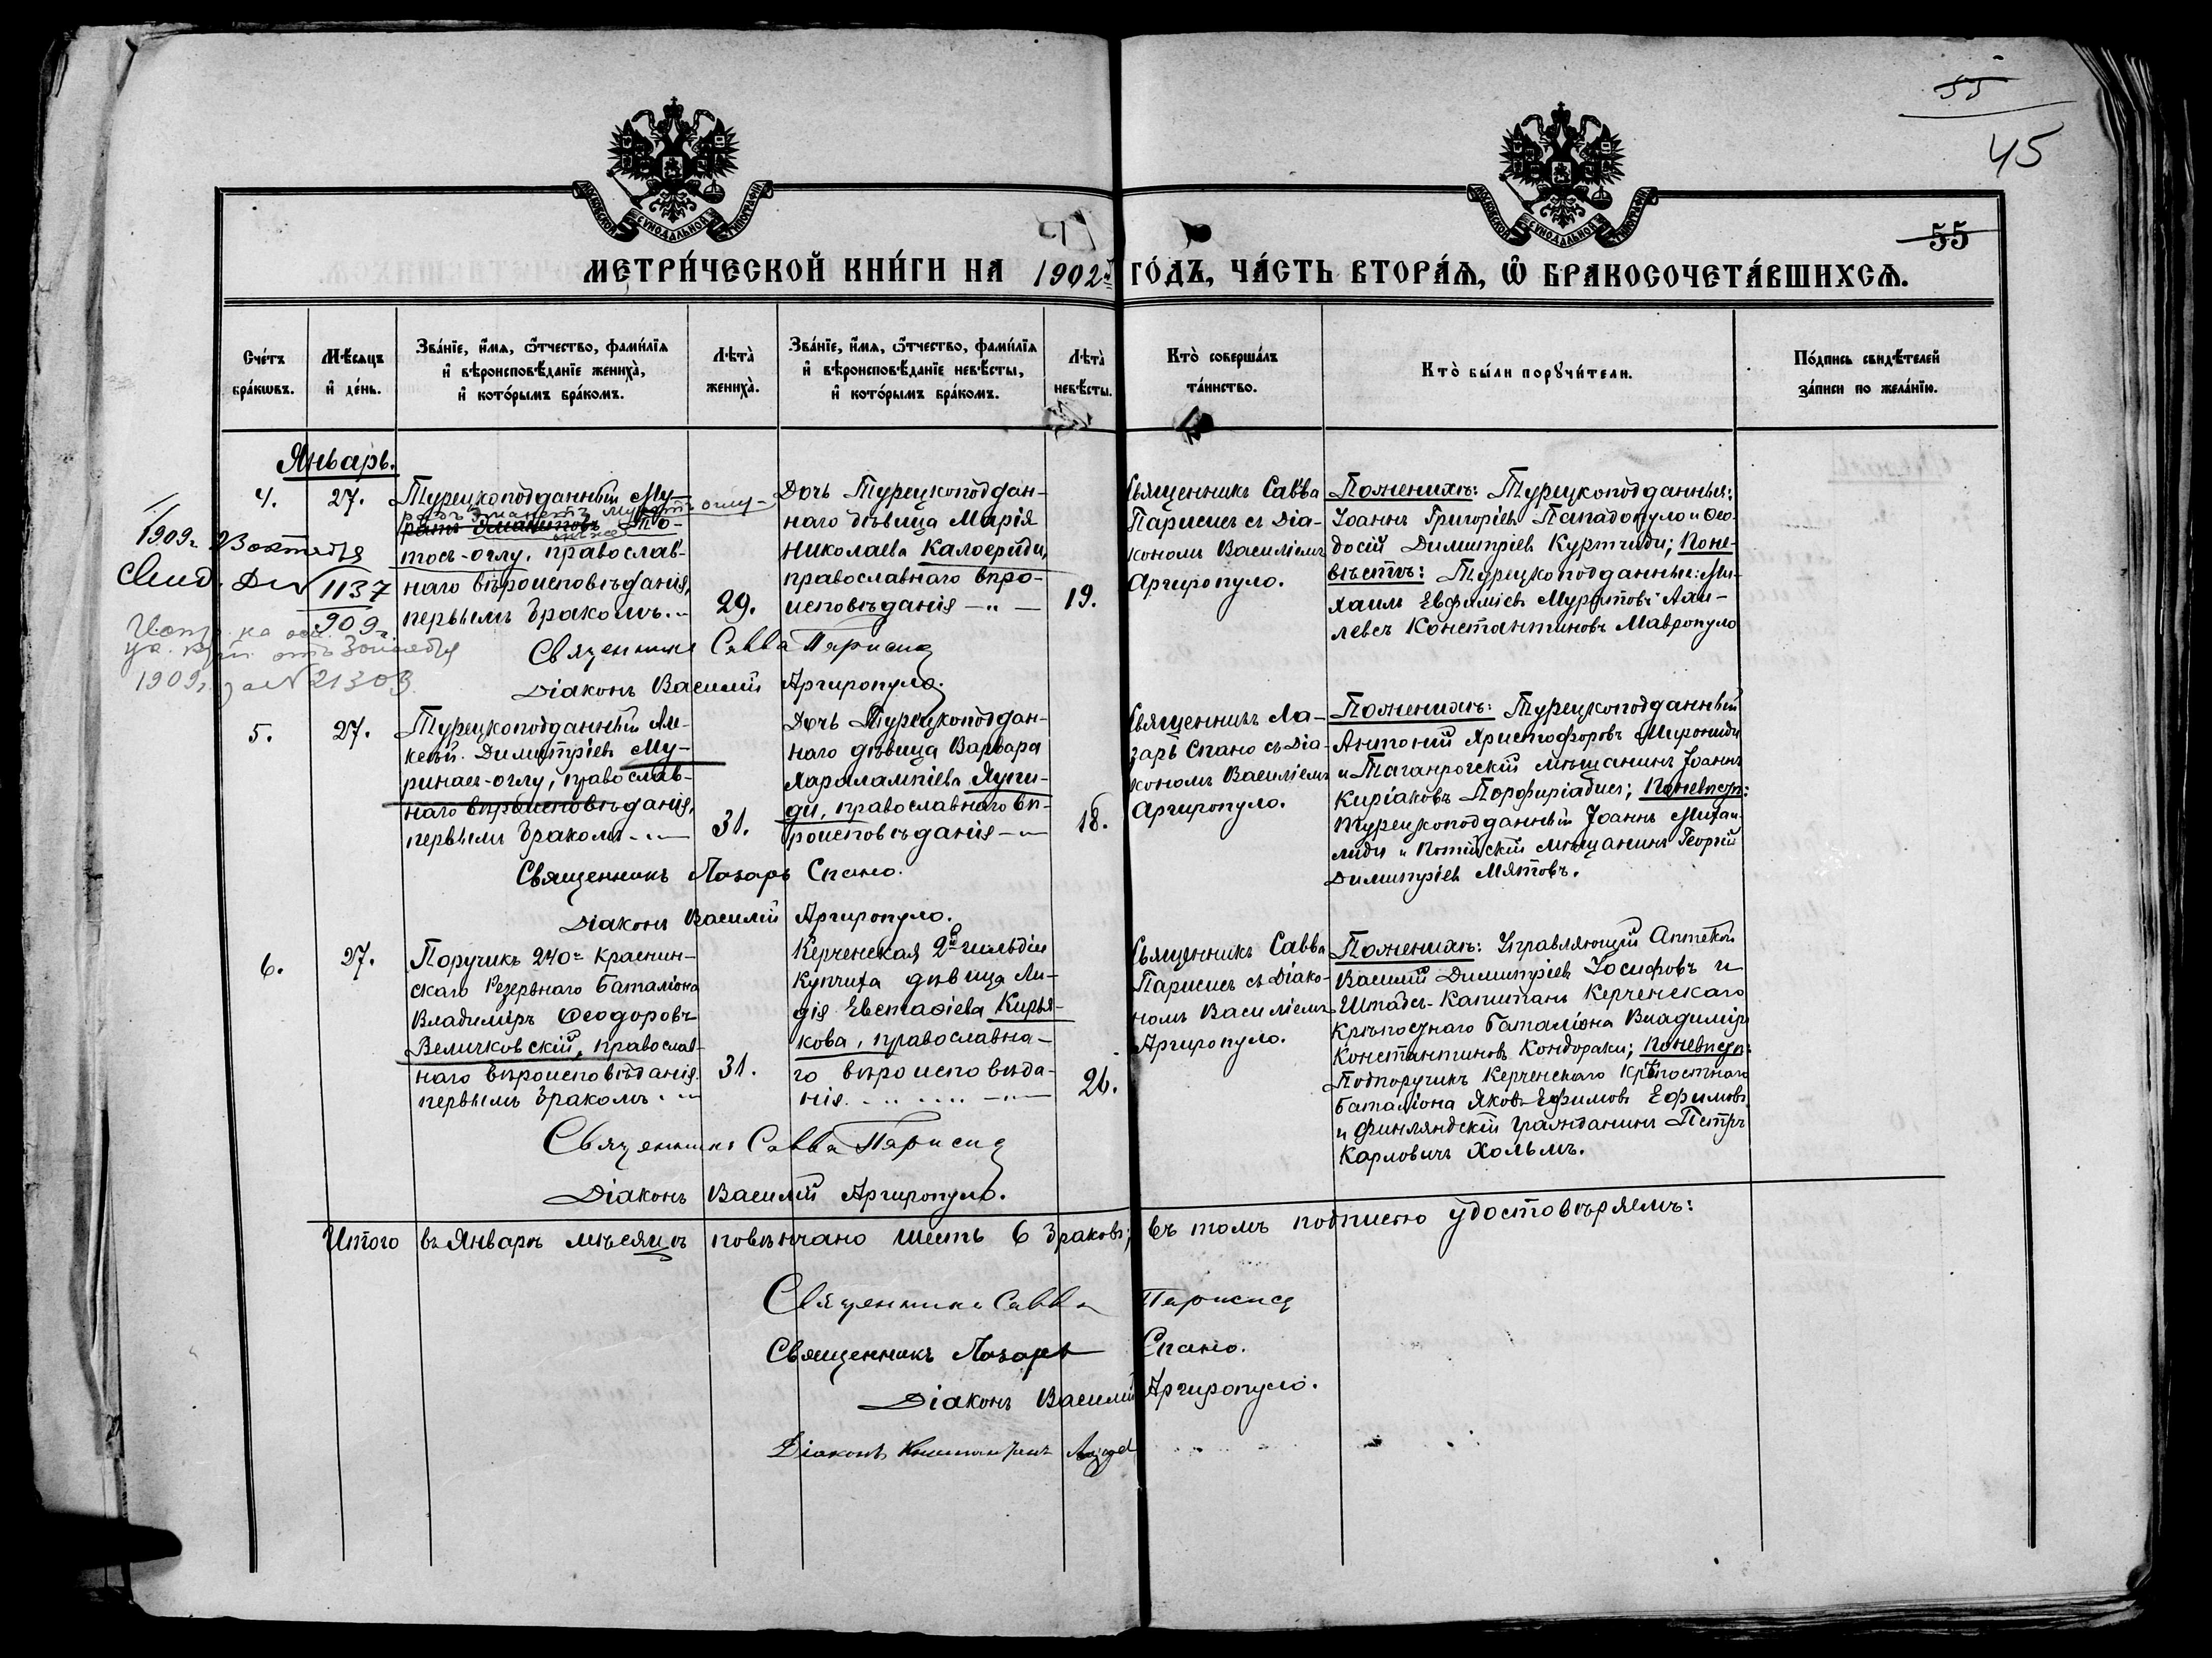 55
45
МОСКОВСКОЙ СѴНОДАЛЬНОЙ ТИПОГРАФІИ
МОСКОВСКОЙ СѴНОДАЛЬНОЙ ТИПОГРАФІИ
55
МЕТРИ́ЧЕСКОЙ КНИ́ГИ НА 1902й ГО́ДЪ, ЧА́СТЬ ВТОРА́Ѧ, Ѽ БРАКОСОЧЕТА́ВШИХСѦ.
Сче́тъ бра́кѡвъ.
Мѣ́сяцъ и҆ де́нь.
Зва́нїе, и҆́мѧ, ѻ҆́тчество, фами́лїѧ и҆ вѣроисповѣ́данїе жениха̀, и҆ кото́рымъ бра́комъ.
Лѣта̀ жениха̀.
Зва́нїе, и҆́мѧ, ѻ҆́тчество, фами́лїѧ и҆ вѣроисповѣ́данїе невѣ́сты, и҆ кото́рымъ бра́комъ.
Лѣта̀ невѣ́сты.
Кто̀ соверша́лъ та́инство.
Кто̀ бы́ли порꙋчи́тели.
По́дпись свидѣ́телей за́писи по жела́нїю.
Январь.
4.
27.
Турецкоподданный Му-
тосъ-оглу, православ-
наго вѣроисповѣданія,
первымъ бракомъ.
29.
Дочь Турецкоподдан-
наго дѣвица Марія
Николаева Калоериди,
православнаго вѣро-
исповѣданія
19.
Священникъ Савва
Парисисъ съ Діа-
кономъ Василіемъ
Аргиропуло.
Поженихѣ: Турецкоподданные:
Іоаннъ Григоріевъ Пападопуло и Ѳео-
досій Димитріевъ Куртчиди; Поне-
вѣстѣ: Турецкоподданные: Ми-
хаилъ Евфиміевъ Муратовъ и Ахи-
левсъ Константиновъ Мавропуло
1909г. 23 октября
Свид. №
1137
909г.
1909г. за № 21303
Священникъ Савва Парисисъ
Діаконъ Василій Аргиропуло.
5.
27.
Турецкоподданный Але-
ксѣй Димитріевъ Му-
ринаев-оглу, православ-
наго вѣроисповѣданія,
первымъ бракомъ
31.
Дочь Турецкоподдан-
наго дѣвица Варвара
Харалампіева Яупи-
ди, православнаго вѣ-
роисповѣданія
18.
Священникъ Ла-
зарь Спано съ Діа-
кономъ Василіемъ
Аргиропуло.
Поженихѣ: Турецкоподданный
Антоній Христофоровъ Мирониди
и Таганрогскій мѣщанинъ Іоаннъ
Киріаковъ Порфиріадисъ; Поневѣстѣ:
Турецкоподданный Іоаннъ Михаи-
лиди и Потійскій мѣщанинъ Георгій
Димитріевъ Мятовъ.
Священникъ Лазарь Спано.
Діаконъ Василій Аргиропуло.
6.
27.
Поручикъ 240го Краснин-
скаго Резервнаго Баталіона
Владиміръ Ѳеодоровъ
Величковскій, православ-
наго вѣроисповѣданія.
первымъ бракомъ.
31.
Керченская 2й гильдіи
Купчиха дѣвица Ли-
дія Евстафіева Кирья-
кова, православна-
го вѣроисповѣда-
нія.
26.
Священникъ Савва
Парисисъ съ Діако-
номъ Василіемъ
Аргиропуло.
Поженихѣ: Управляющій Аптекой
Василій Димитріевъ Іосифовъ и
Штабсъ-Капитанъ Керченскаго
Крѣпостнаго баталіона Владиміръ
Константиновъ Кондораки; Поневѣстѣ:
Подпоручикъ Керченскаго Крѣпостнаго
баталіона Яковъ Ефимовъ Ефимовъ
и Финляндскій Гражданинъ Петръ
Карловичъ Хольмъ.
Священникъ Савва Парисисъ
Діаконъ Василій Аргиропуло.
Итого въ Январѣ мѣсяцѣ повѣнчано шесть 6 браковъ; въ томъ подписью удостовѣряемъ:
Священникъ Савва Парисисъ
Священникъ Лазарь Спано.
Діаконъ Василій Аргиропуло.
Діаконъ